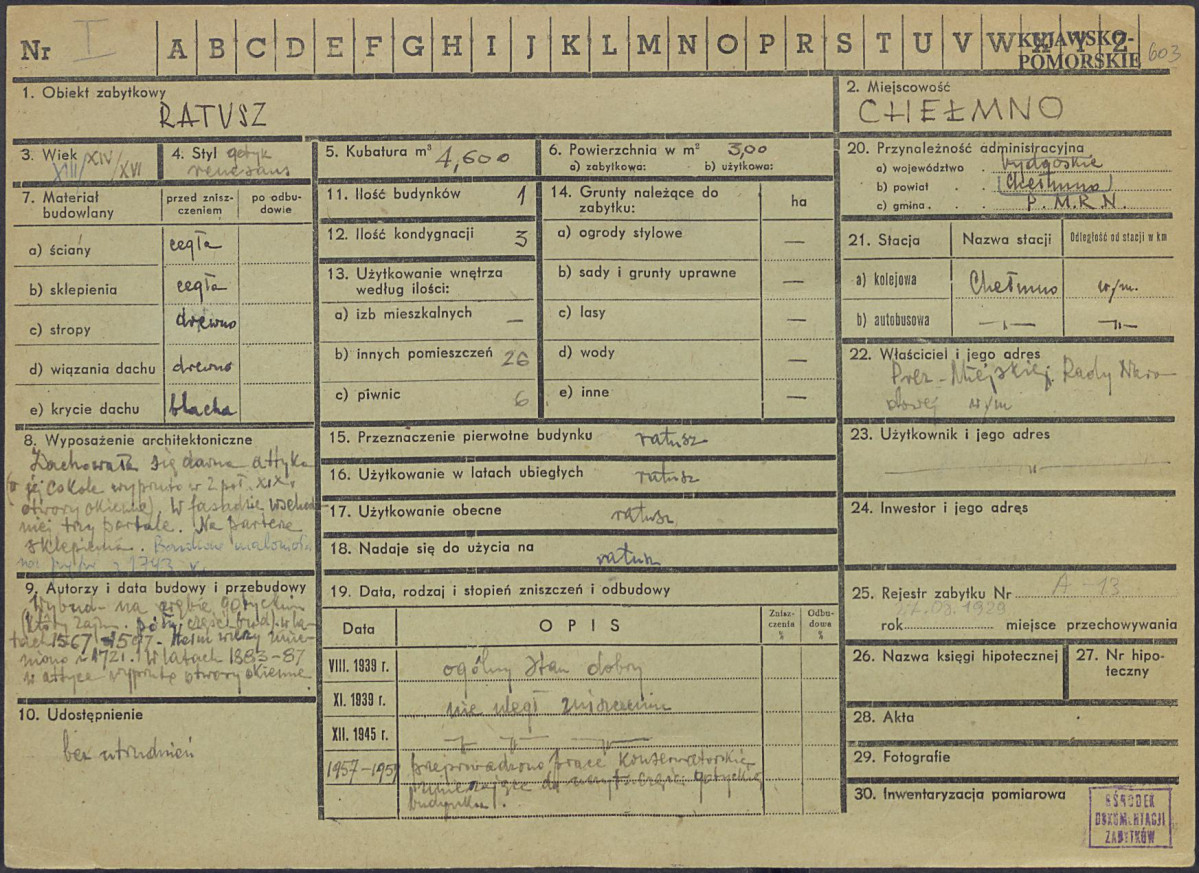 Nr I A B C D E F G H I J K L M N O P R S T U V W X Y Z
KUJAWSKO-
POMORSKIE 603
1. Obiekt zabytkowy
RATUSZ
2. Miejscowość
CHEŁMNO
3. Wiek
XIII/XIV/XVI
4. Styl gotyk
renesans
5. Kubatura m³ 4,600
6. Powierzchnia w m² 3,00
a) zabytkowa: b) użytkowa:
20. Przynależność administracyjna
a) województwo bydgoskie
b) powiat (Chełmno)
c) gmina P. M.R.N.
7. Materiał
budowlany
przed znisz-
czeniem
po odbu-
dowie
a) ściany cegła
b) sklepienia cegła
c) stropy drewno
d) wiązania dachu drewno
e) krycie dachu blacha
11. Ilość budynków 1
12. Ilość kondygnacji 3
13. Użytkowanie wnętrza
według ilości:
a) izb mieszkalnych —
b) innych pomieszczeń 26
c) piwnic 6
14. Grunty należące do
zabytku:
ha
a) ogrody stylowe —
b) sady i grunty uprawne —
c) lasy —
d) wody —
e) inne —
21. Stacja Nazwa stacji Odległość od stacji w km
a) kolejowa Chełmno w/m.
b) autobusowa —„— —„—
22. Właściciel i jego adres
Prez. Miejskiej Rady Naro-
dowej w/m
8. Wyposażenie architektoniczne
Zachowała się dawna attyka
(w jej cokole wypruto w 2 poł. XIX w.
otwory okienne). W fasadzie wschod-
niej trzy portale. Na parterze
sklepienia.
1743 r.
15. Przeznaczenie pierwotne budynku ratusz
16. Użytkowanie w latach ubiegłych ratusz
17. Użytkowanie obecne ratusz
18. Nadaje się do użycia na ratusz
23. Użytkownik i jego adres
—„—
24. Inwestor i jego adres
9. Autorzy i data budowy i przebudowy
Wybud. na zrębie gotyckim
(który zajm. półn. część bud.) w la-
tach 1567-1597. Hełm wieży zmie-
niono w 1721. W latach 1883-87
w attyce wypruto otwory okienne
19. Data, rodzaj i stopień zniszczeń i odbudowy
Data OPIS Znisz-
czenia
% Odbu-
dowa
%
VIII. 1939 r. ogólny stan dobry
XI. 1939 r. nie uległ zniszczeniu
XII. 1945 r. —„— —„— —„—
1957-1959 przeprowadzono prace konserwatorskie
zmierzające do gotyckiej
budynku).
10. Udostępnienie
bez utrudnień
25. Rejestr zabytku Nr A-13
rok 1929 miejsce przechowywania
26. Nazwa księgi hipotecznej
27. Nr hipo-
teczny
28. Akta
29. Fotografie
30. Inwentaryzacja pomiarowa
OŚRODEK
DOKUMENTACJI
ZABYTKÓW